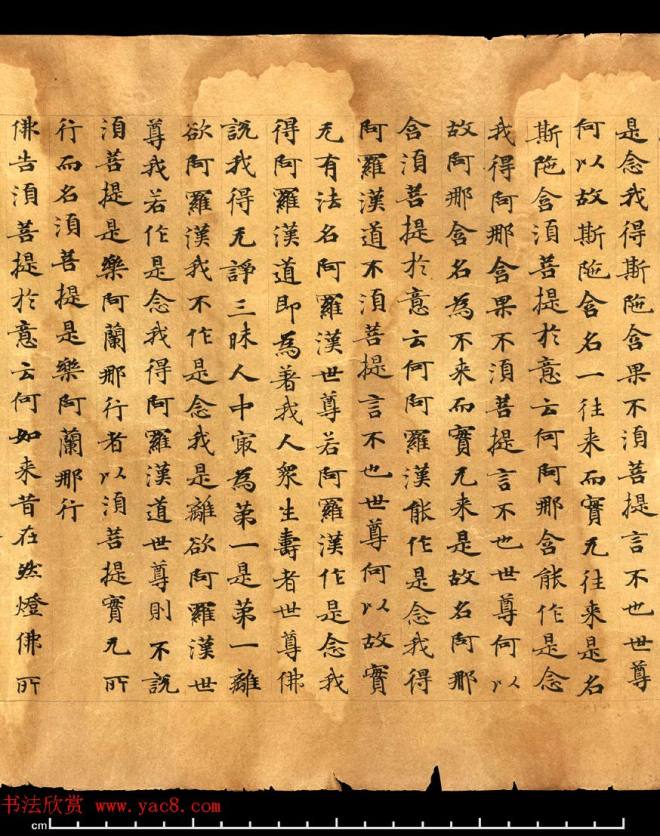 是念我得斯陁含果不湏菩提言不也世尊
何以故斯陁含名一往来而實无往来是名
斯陁含湏菩提扵意云何阿那含能作是念
我得阿那含果不湏菩提言不也世尊何以
故阿那含名為不来而實无来是故名阿那
含湏菩提扵意云何阿羅漢能作是念我得
阿羅漢道不湏菩提言不也世尊何以故實
无有法名阿羅漢世尊若阿羅漢作是念我
得阿羅漢道即為著我人衆生壽者世尊佛
說我得无諍三昧人中㝡為第一是第一離
欲阿羅漢我不作是念我是離欲阿羅漢世
尊我若作是念我得阿羅漢道世尊則不說
湏菩提是樂阿蘭那行者以湏菩提實无所
行而名湏菩提是樂阿蘭那行
佛告湏菩提扵意云何如来昔在然燈佛所
书法欣赏 www.yac8.com
cm